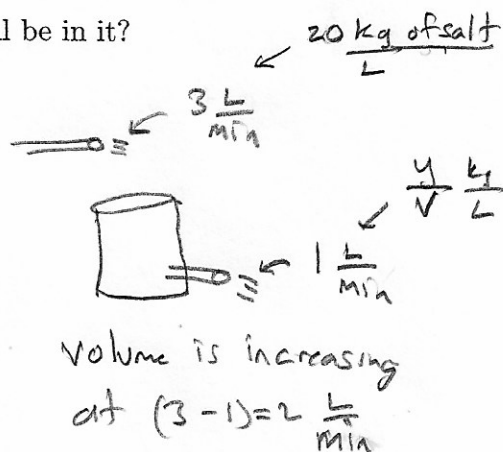 l be in it?
20 kg of salt
L
3 L
min
y kg
V L
1 L
min
Volume is increasing
at (3-1)=2 L
min